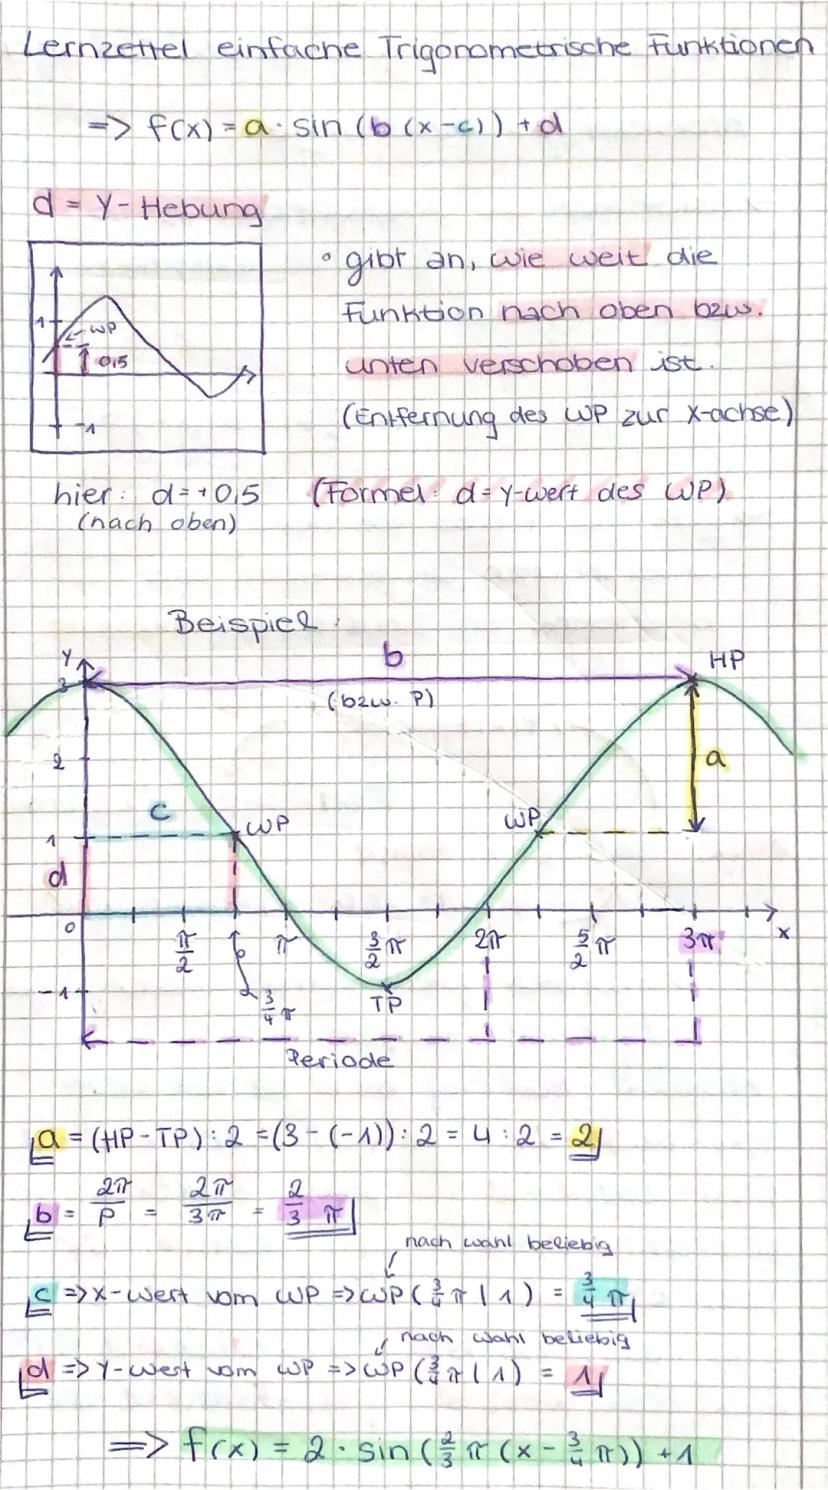 Lernzettel einfache Trigonometrische Funktionen
=> f(x) = a · sin (b (x-c)) + d
d = Y-Hebung
1
WP
0,5
-1
° gibt an, wie weit die
Funktion nach oben bzw.
unten verschoben ist.
(Entfernung des WP zur X-achse)
hier: d = +0,5 (Formel: d = Y-wert des WP)
(nach oben)
Beispiel:
Y
b
HP
3
(bzw. P)
2
a
c
WP
WP
1
d
0
π/2
π
3/2 π
2π
5/2 π
3π
x
-1
3/4 π
TP
Periode
a = (HP - TP) : 2 = (3 - (-1)) : 2 = 4 : 2 = 2
b = 2π/P = 2π/3π = 2/3 π
nach wahl beliebig
c => X-Wert vom WP => WP (3/4 π | 1) = 3/4 π
nach wahl beliebig
d => Y-Wert vom WP => WP (3/4 π | 1) = 1
=> f(x) = 2 · sin (2/3 π (x - 3/4 π)) + 1